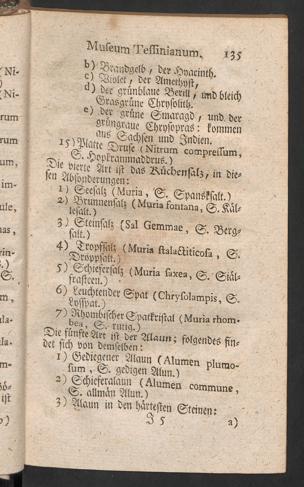 Museum Tessinianum. 135
b) Brandgelb, der Hyacinth.
c) Violet, der Amethyst,
d) der grünblaue Berill, und bleich
Grasgrüne Chrysolith.
e) der grüne Smaragd, und der
grüngraue Chrysopras: kommen
aus Sachsen und Indien.
15) Platte Druse (Nitrum compressum,
S.
Die vierte Art ist das Küchensalz, in die-
sen Absonderungen:
1) Seesalz (Muria, S. Spansksalt.)
2) Brunnensalz (Muria fontana, S. Käl-
lesalt.)
3) Steinsalz (Sal Gemmae, S. Berg-
salt.)
4) Tropfsalz (Muria stalactiticosa, S.
Droppsalt.)
5) Schiefersalz (Muria saxea, S.
6) Leuchtender Spat (Chrysolampis, S.
Lysspat.)
7) Rhombischer Spatkristal (Muria rhom-
bea, S. rutig.)
Die fünfte Art ist der Alaun; folgendes fin-
det sich von demselben:
1) Gediegener Alaun (Alumen plumo-
sum, S. gedigen Alun.)
2) Schieferalaun (Alumen commune,
S. allmän Alun.)
3) Alaun in den härtesten Steinen:
J 5 a)